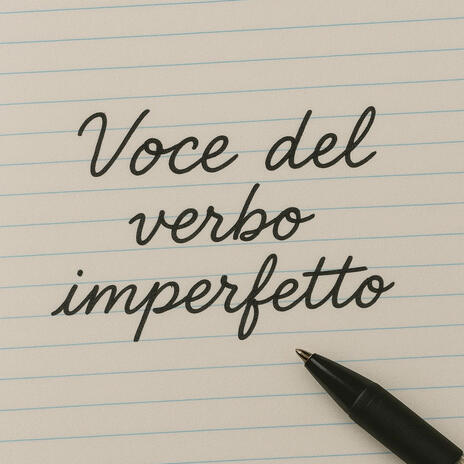 Voce del
verbo
imperfetto